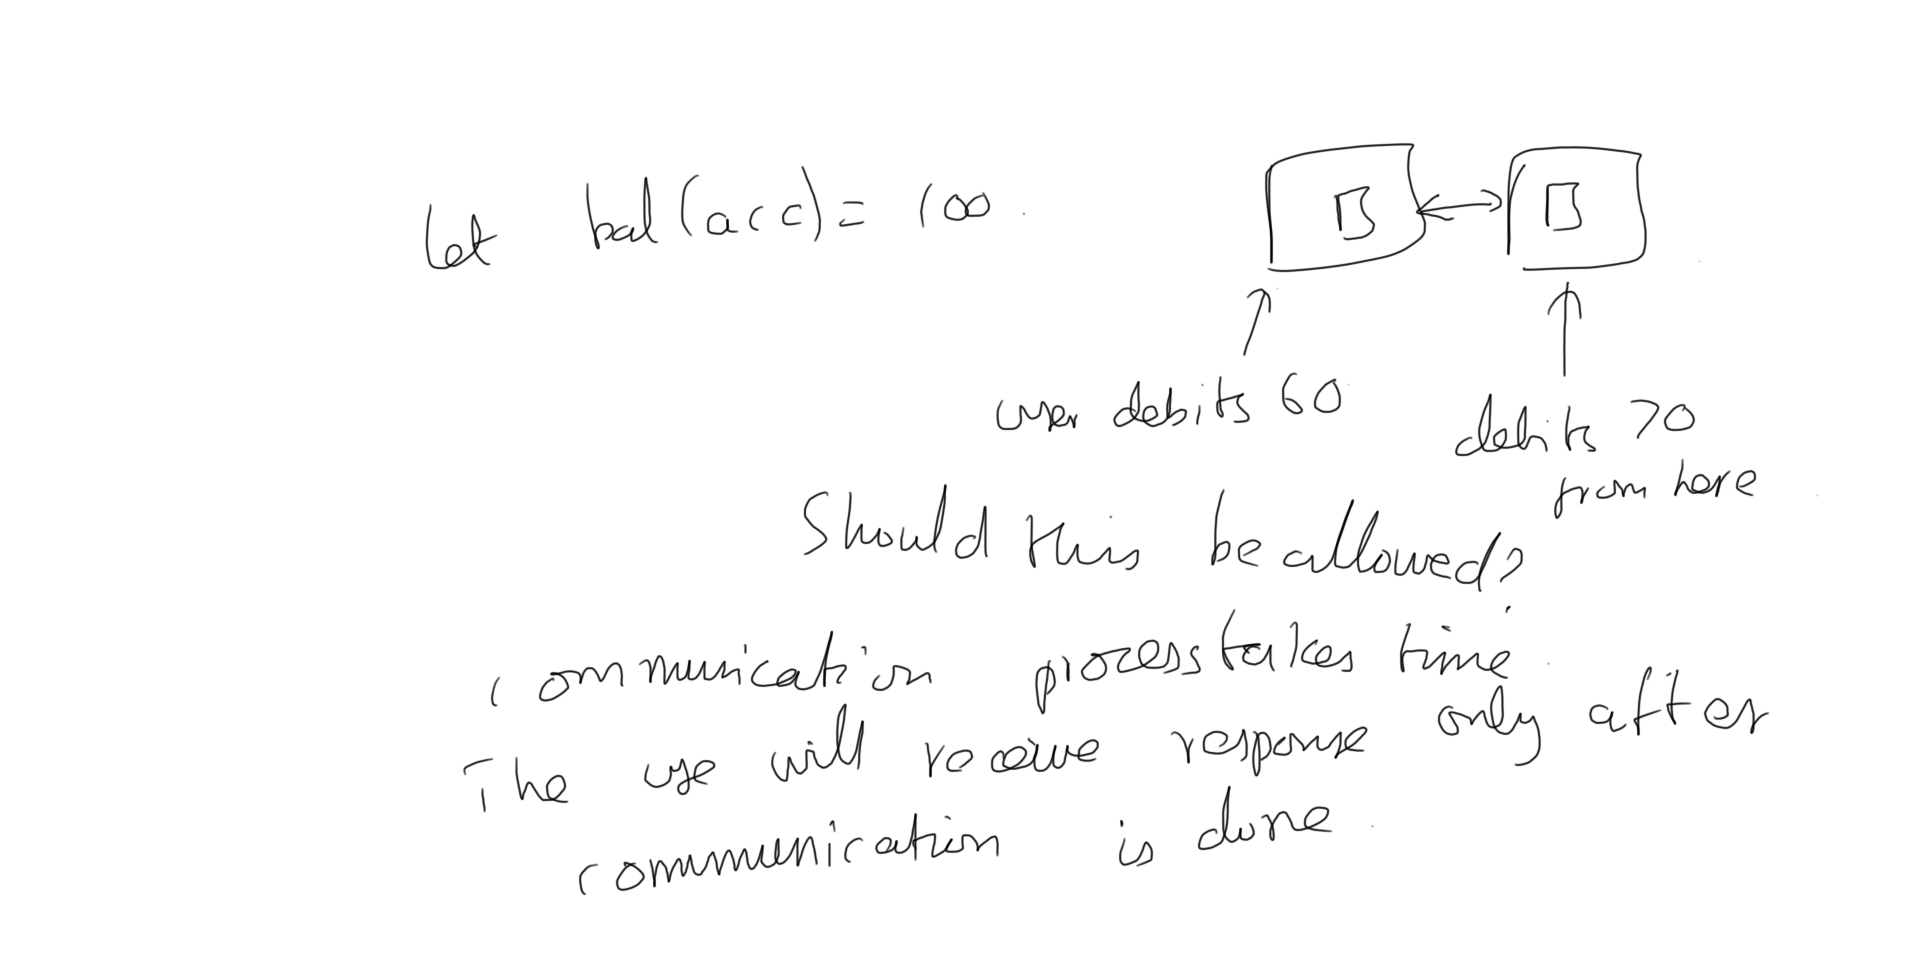 Let bal(acc) = 100.
B B
user debits 60
debits 70
from here
Should this be allowed?
communication process takes time.
The use will receive response only after
communication is done.